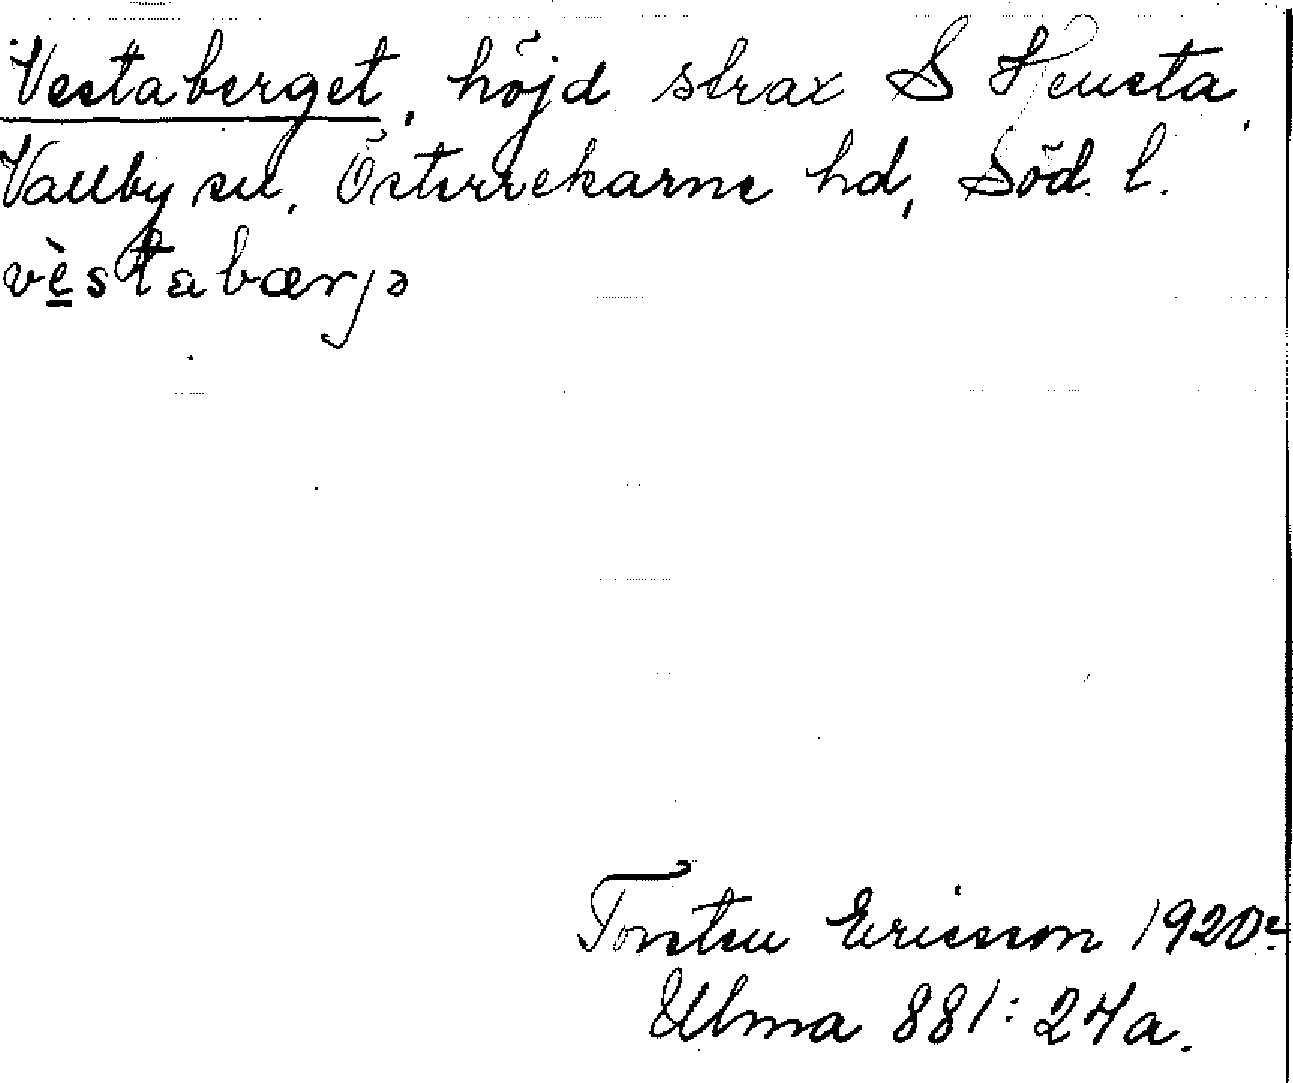 Vestaberget, höjd strax S Heusta,
Vallby sn, Österrekarne hd, Söd. l.
vèstabærjə
Torsten Ericsson 1920
Ulma 881:24a.